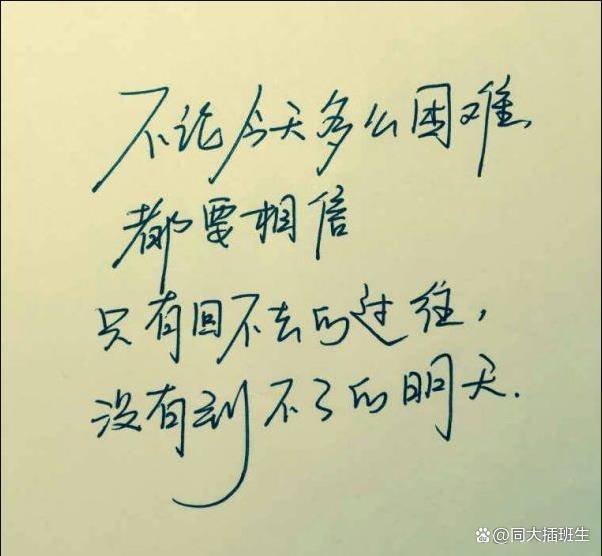 不论今天多么困难,
都要相信
只有回不去的过往,
没有到不了的明天.
@同大插班生